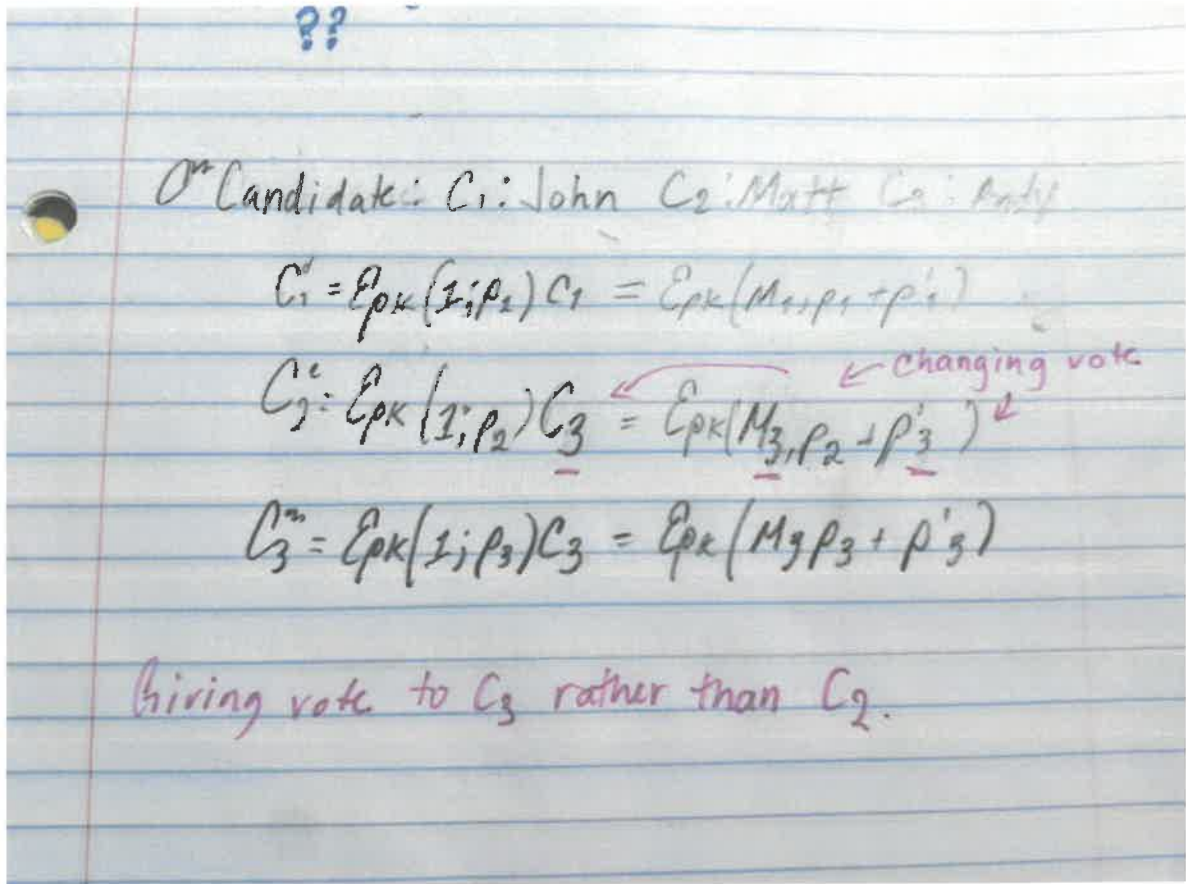 ??
Candidate: C₁: John C₂: Matt C₃: Andy
C₁' = Epk(1; ρ₁) C₁ = Epk(M₁, ρ₁ + ρ'₁)
← changing vote
C₂' = Epk(1; ρ₂) C₃ = Epk(M₃, ρ₂ + ρ'₃)
C₃ = Epk(1; ρ₃) C₃ = Epk(M₃ ρ₃ + ρ'₃)
Giving vote to C₃ rather than C₂.